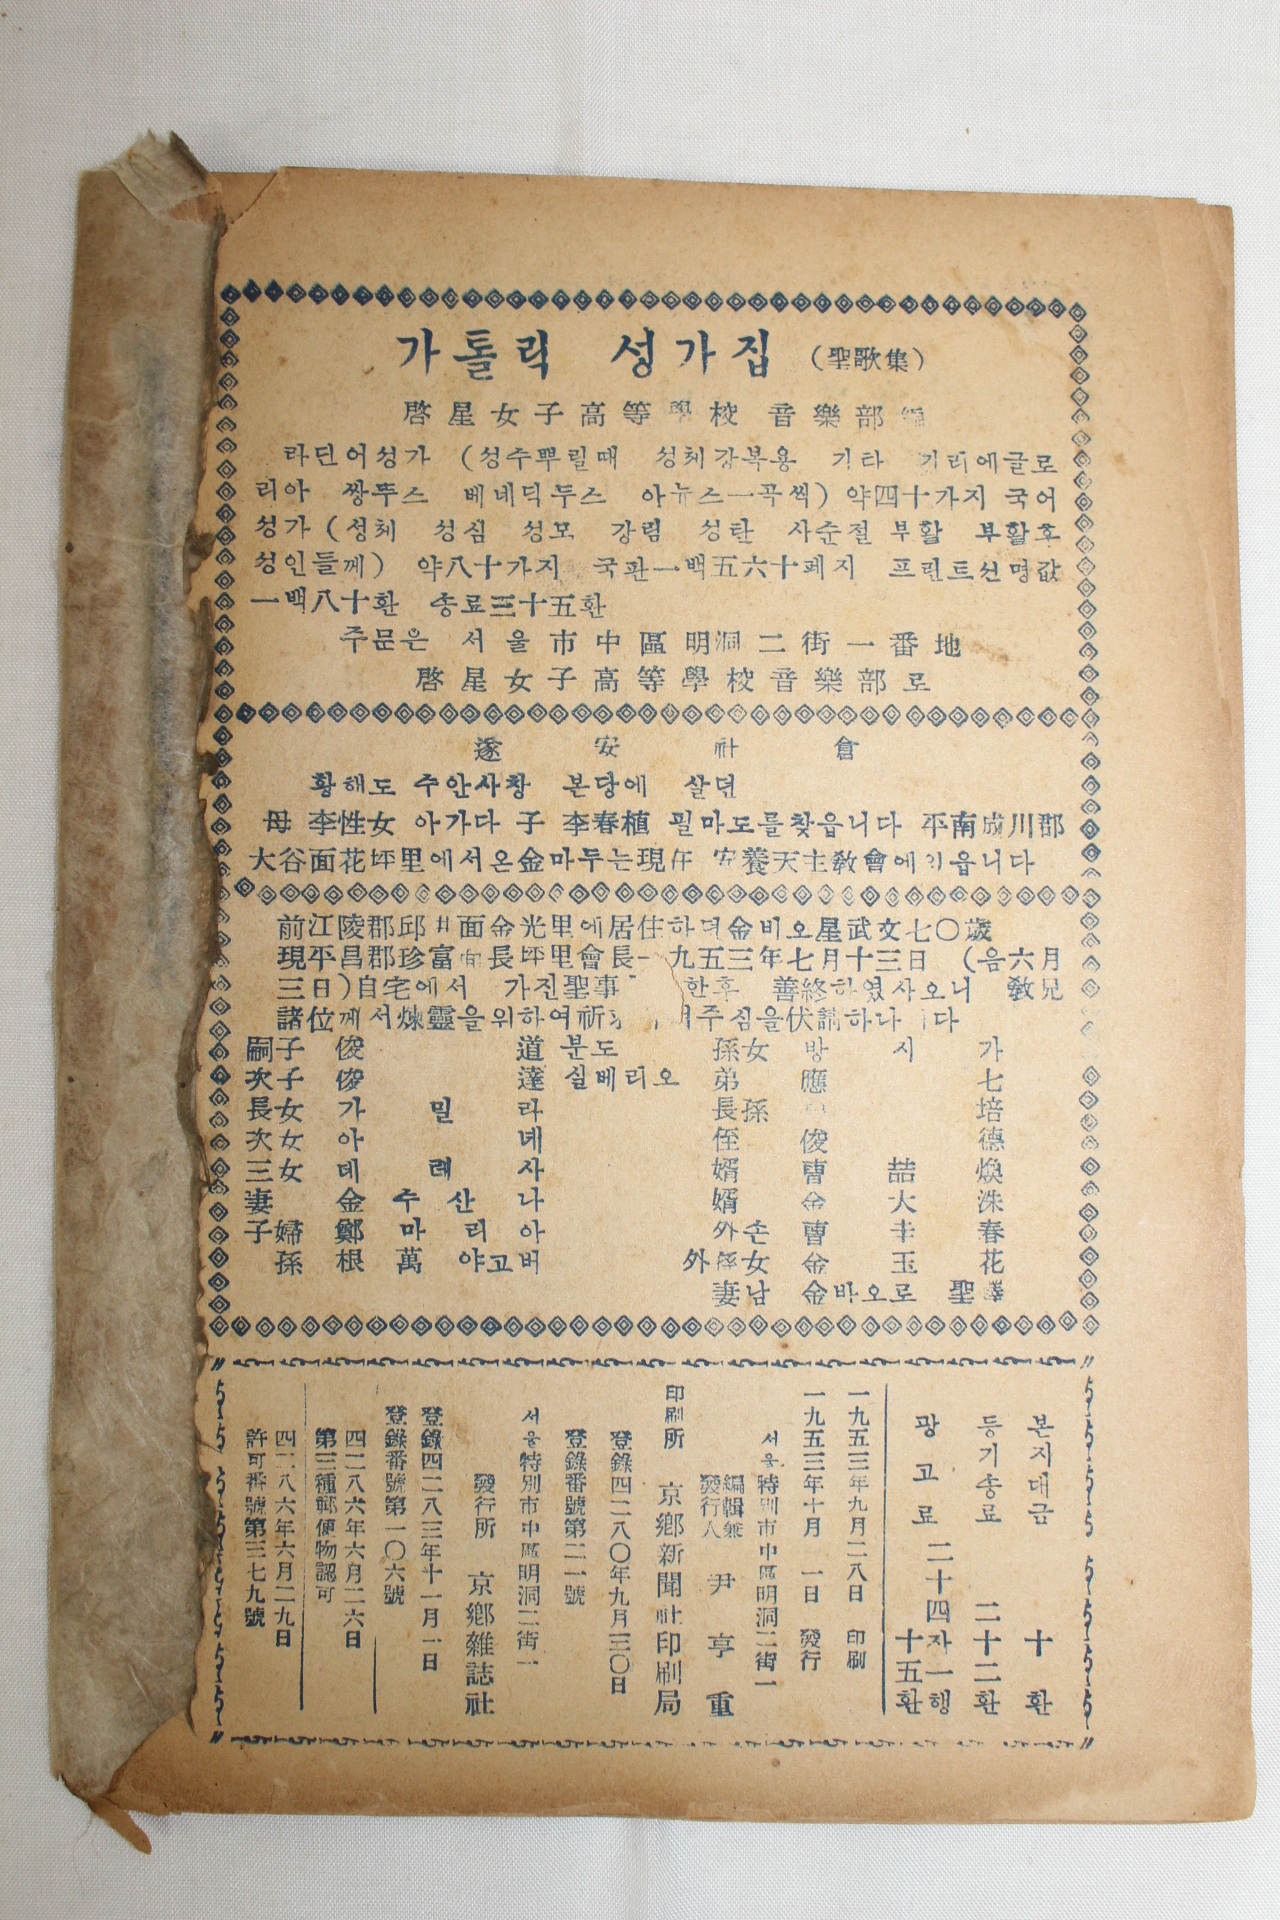 가톨릭 성가집 (聖歌集)
啓星女子高等學校 音樂部 編
라딘어성가 (성수뿌릴때 성체강복용 기타 기리에글로
리아 쌍뚜스 베네딕두스 아뉴스一곡씩) 약四十가지 국어
성가 (성체 성심 성모 강림 성탄 사순절 부활 부활후
성인들께) 약八十가지 국판一백五六十페지 프린트선명값
一백八十환 송료三十五환
주문은 서울市中區明洞二街一番地
啓星女子高等學校音樂部로
遂安社會
황해도 수안사창 본당에 살던
母 李性女 아가다 子 李春植 필마도를찾읍니다 平南成川郡
大谷面花坪里에서온金마두는現在 安養天主敎會에 읍니다
前江陵郡邱井面金光里에居住하던金비오星武文七〇歲
現平昌郡珍富面長坪里會長一九五三年七月十三日 (음六月
三日)自宅에서 가진聖事 한후 善終하였사오니 敎兄
諸位께서煉靈을위하여祈求 주심을伏請하나 다
嗣子 俊道 분도
次子 俊達 실베리오
長女 가밀라
次女 아네
三女 데레사
妻 金수산나
子婦 鄭마리아
孫 根萬 야고버
孫女 방시가
弟 應七
長孫 培
侄 俊德
婿 曺喆煥
婿 金大洙
外손 曺圭春
外孫女 金玉花
妻남 金바오로 聖
본지대금 十환
등기송료 二十二환
광고료 二十四자一행
十五환
一九五三年九月二八日 印刷
一九五三年十月 一日 發行
서울特別市中區明洞二街一
編輯兼
發行人 尹亨重
印刷所 京鄕新聞社印刷局
登錄四二八〇年九月三〇日
登錄番號第二一號
서울特別市中區明洞二街一
發行所 京鄕雜誌社
登錄四二八三年十一月一日
登錄番號第一〇六號
四二八六年六月二六日
第三種郵便物認可
四二八六年六月二九日
許可番號第三七九號